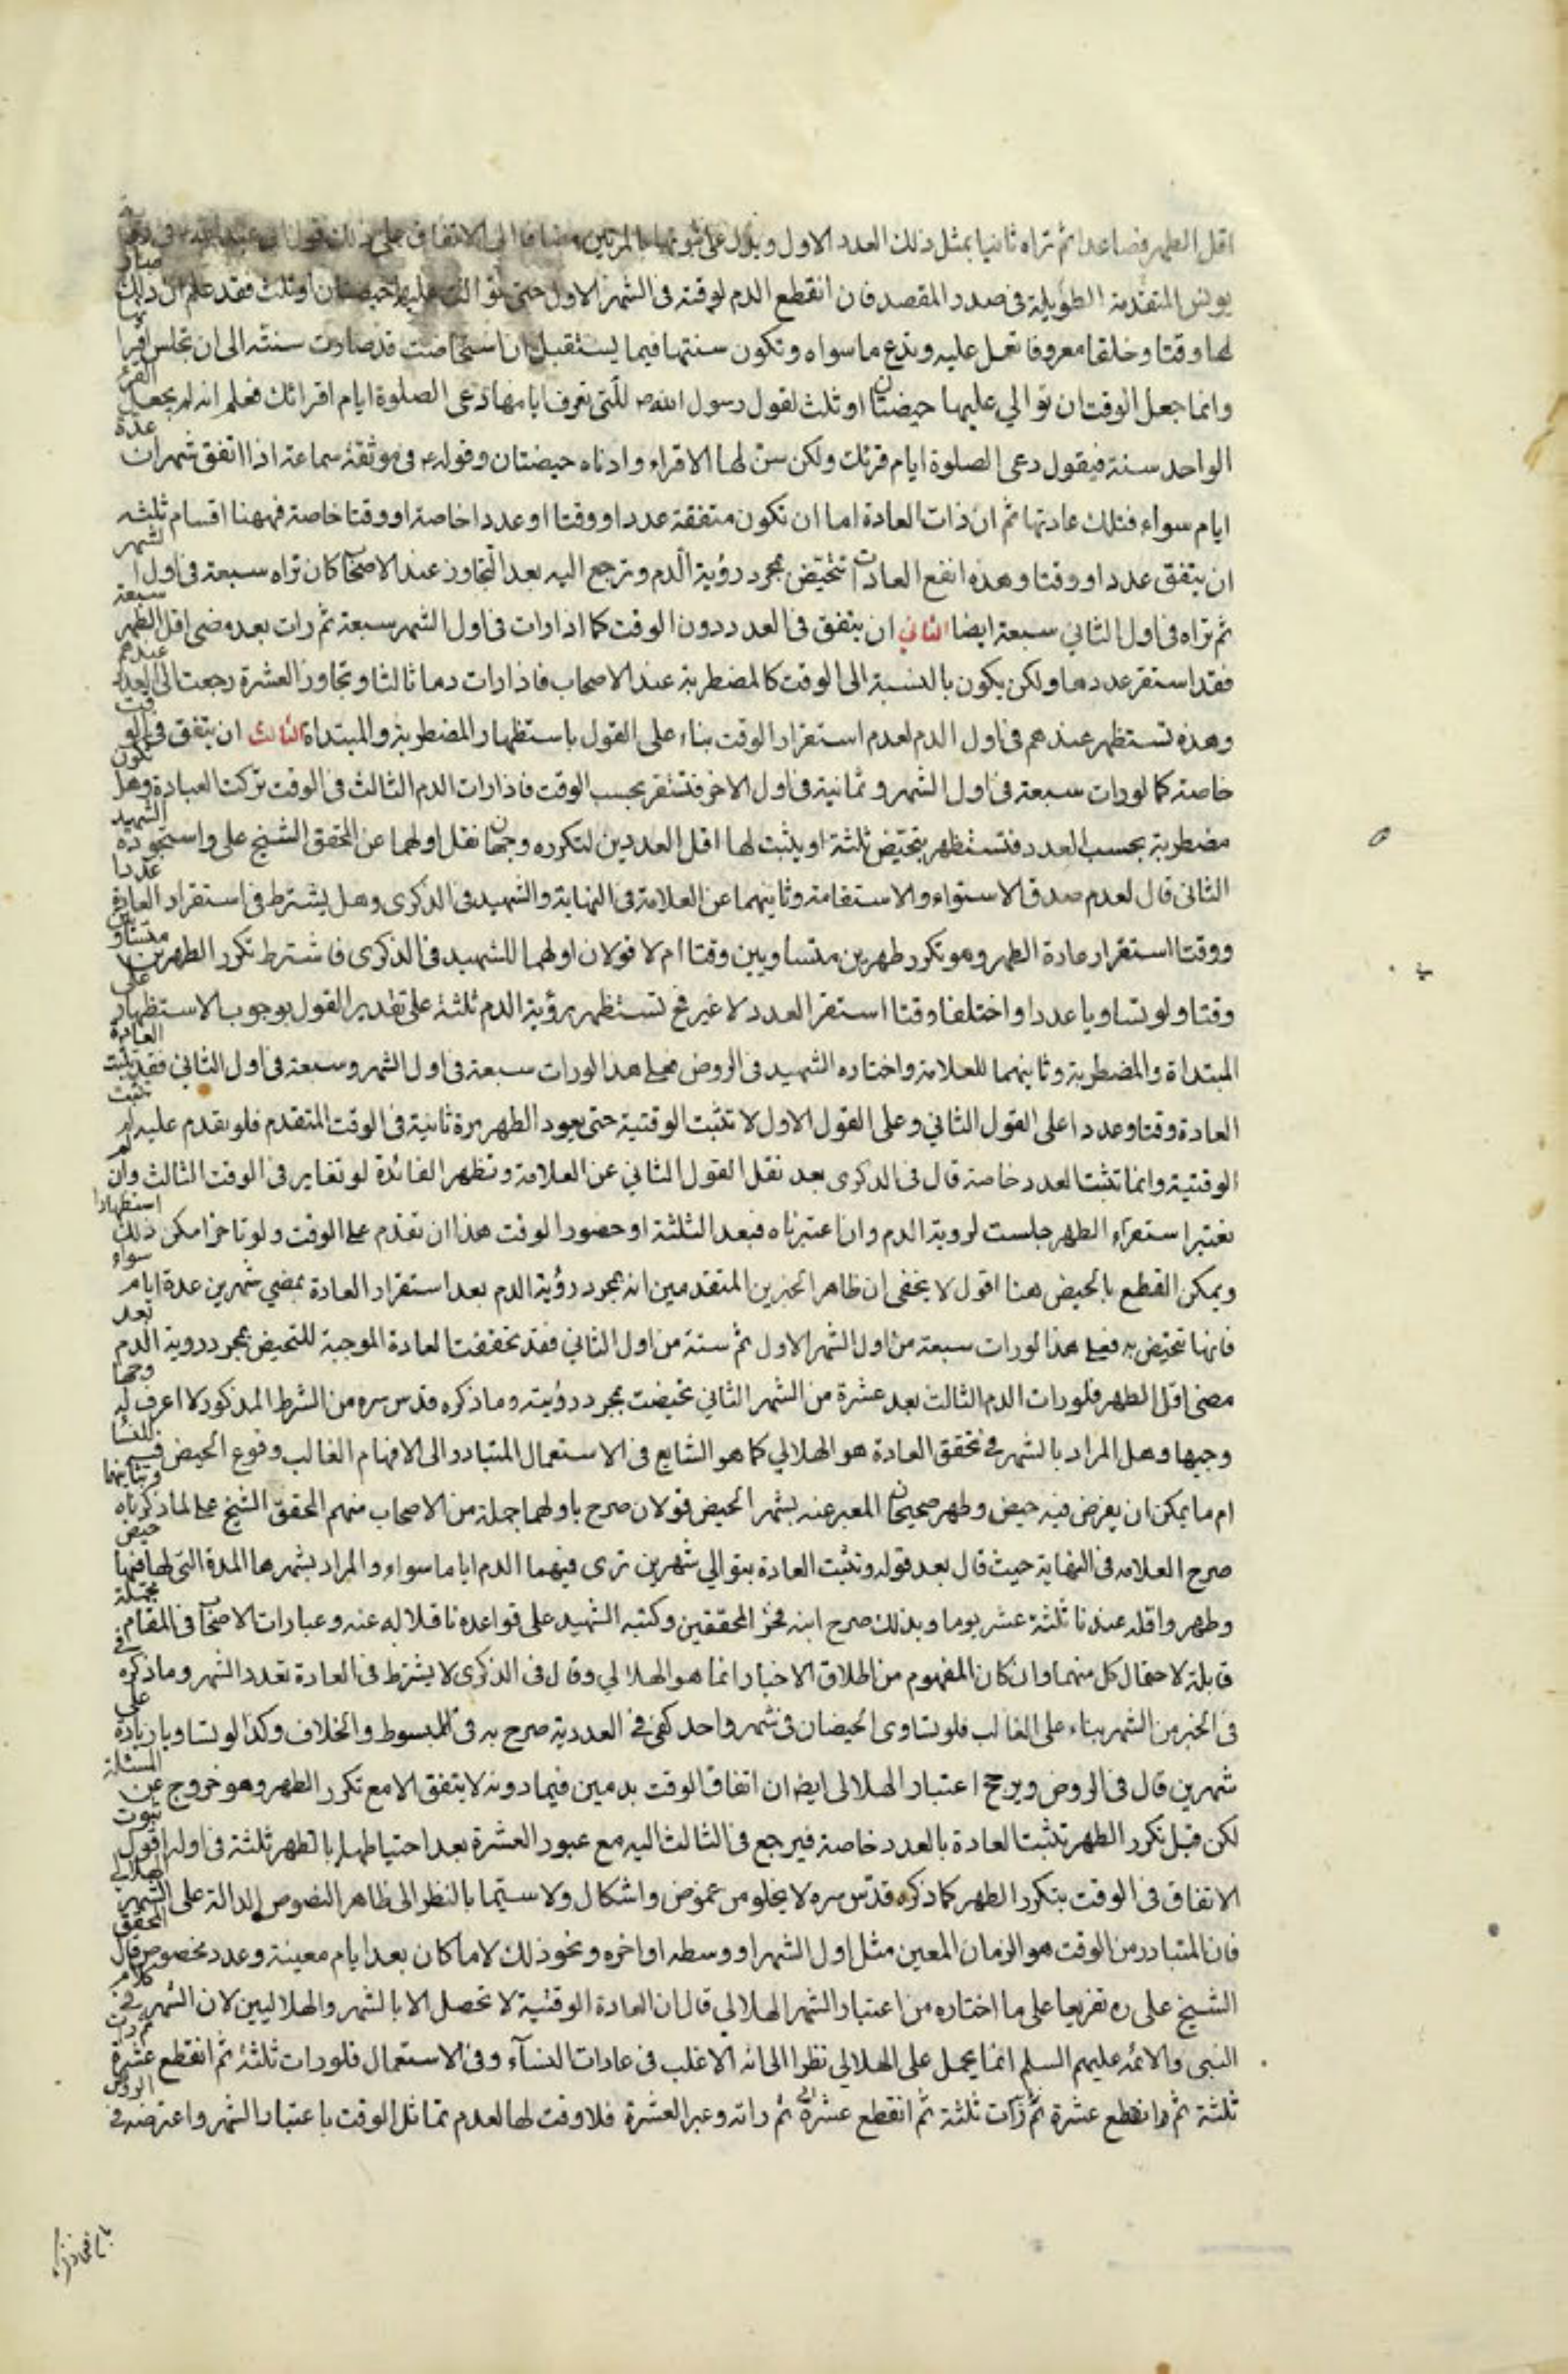 اقل الطهر فصاعدا ثم تراه ثانيا بمثل ذلك العدد الاول ويدل على ثبوتها بالمرتين مضافا الى الاتفاق على ذلك قول ابي عبد الله في رواية
يونس المتقدمة الطويلة في صدر المقصد فان انقطع الدم لوقته في الشهر الاول حتى توالت عليه حيضتان او ثلث فقد علم ان ذلك صار
لها وقتا وخلقا معروفا تعمل عليه وتدع ما سواه وتكون سنتها فيما يستقبل ان استحاضت قد صارت سنته الى ان تجلس اقرائها
وانما جعل الوقت ان توالي عليها حيضتان او ثلث لقول رسول الله ص للتي تعرف ايامها دعى الصلوة ايام اقرائك فعلم انه لم يجعل القرء
الواحد سنة فيقول دعى الصلوة ايام قرئك ولكن سن لها الاقراء وادناه حيضتان وقوله ع في موثقة سماعة اذا اتفق شهران عدة
ايام سواء فتلك عادتها ثم ان ذات العادة اما ان تكون متفقة عددا ووقتا او عددا خاصة او وقتا خاصة فههنا اقسام ثلثه
ان يتفق عددا ووقتا وهذه انفع العادات تتحيض بمجرد رؤية الدم وترجع اليه بعد التجاوز عند الاصحاب كان تراه سبعة في اول الشهر
ثم تراه في اول الثاني سبعة ايضا الثاني ان يتفق في العدد دون الوقت كما اذا رات في اول الشهر سبعة ثم رات بعد مضى اقل الطهر سبعة
فقد استقر عددها ولكن يكون بالنسبة الى الوقت كالمضطربة عند الاصحاب فاذا رات دما ثالثا وتجاوز العشرة رجعت الى العدد عندهم
وهذه تستظهر عندهم في اول الدم لعدم استقرار الوقت بناء على القول باستظهار المضطربة والمبتداة الثالث ان يتفق في الوقت
خاصة كما لو رات سبعة في اول الشهر وثمانية في اول الاخر فتستقر بحسب الوقت فاذا رات الدم الثالث في الوقت تركت العبادة وهل تكون
مضطربة بحسب العدد فتستظهر بتحيض ثلثة او يثبت لها اقل العددين لتكرره وجهان نقل اولهما عن المحقق الشيخ على واستجوده الشهيد
الثاني قال لعدم صدق الاستواء والاستقامة وثانيهما عن العلامة في النهاية والشهيد في الذكرى وهل يشترط في استقرار العادة عددا
ووقتا استقرار عادة الطهر وهو تكرر طهرين متساويين وقتا ام لا قولان اولهما للشهيد في الذكرى فاشترط تكرر الطهرين متساويين
وقتا ولو تساويا عددا واختلفا وقتا استقر العدد لا غير فح تستظهر برؤية الدم ثلثة على تقدير القول بوجوب الاستظهار على
المبتداة والمضطربة وثانيهما للعلامة واختاره الشهيد في الروض فعلى هذا لو رات سبعة في اول الشهر وسبعة في اول الثاني فقد ثبتت العادة
العادة وقتا وعددا على القول الثاني وعلى القول الاول لا تثبت الوقتية حتى يعود الطهر مرة ثانية في الوقت المتقدم فلو تقدم عليه لم تثبت
الوقتية وانما تثبت العدد خاصة قال في الذكرى بعد نقل القول الثاني عن العلامة وتظهر الفائدة لو تغاير في الوقت الثالث وان لم
نعتبر استقراء الطهر جلست لروية الدم وان اعتبرناه فبعد الثلثة او حضور الوقت هذا ان تقدم على الوقت ولو تاخر امكن ذلك استظهارا
ويمكن القطع بالحيض هنا اقول لا يخفى ان ظاهر الخبرين المتقدمين انه بمجرد رؤية الدم بعد استقرار العادة بمضي شهرين عدة ايام سواء
فانها تتحيض به فعلى هذا لو رات سبعة من اول الشهر الاول ثم ستة من اول الثاني فقد تحققت العادة الموجبة للتحيض بمجرد روية الدم بعد
مضى اقل الطهر فلو رات الدم الثالث بعد عشرة من الشهر الثاني تحيضت بمجرد رؤيته وما ذكره قدس سره من الشرط المذكور لا اعرف له وجها
وجيها وهل المراد بالشهر في تحقق العادة هو الهلالي كما هو الشايع في الاستعمال المتبادر الى الافهام الغالب وقوع الحيض فيه للنساء
ام ما يمكن ان يفرض فيه حيض وطهر صحيحان المعبر عنه بشهر الحيض قولان صرح باولهما جملة من الاصحاب منهم المحقق الشيخ على لما ذكرناه وبثانيهما
صرح العلامه في النهاية حيث قال بعد قوله وتثبت العادة بتوالي شهرين ترى فيهما الدم اياما سواء والمراد بشهرها المدة التي لها فيها حيض
وطهر واقله عندنا ثلثة عشر يوما وبذلك صرح ابنه فخر المحققين وكتبه الشهيد على قواعده ناقلا له عنه وعبارات الاصحاب في المقام مجملة
قابلة لاحتمال كل منهما وان كان المفهوم من اطلاق الاخبار انما هو الهلالي وقال في الذكرى لا يشترط في العادة تعدد الشهر وما ذكره
في الخبر من الشهر بناء على الغالب فلو تساوى الحيضان في شهر واحد كفى في العددية صرح به في المبسوط والخلاف وكذا لو تساويا زيادة على
شهرين قال في الروض ويرجح اعتبار الهلالي ايضا ان اتفاق الوقت بدمين فيما دونه لا يتفق الا مع تكرر الطهر وهو خروج عن المسئلة
لكن قبل تكرر الطهر تثبت العادة بالعدد خاصة فيرجع في الثالث اليه مع عبور العشرة بعد احتياطها بالطهر ثلثة في اوله اقول ثبوت
الاتفاق في الوقت بتكرر الطهر كما ذكره قدس سره لا يخلو من غموض واشكال ولا سيتما بالنظر الى ظاهر النصوص الدالة على الشهر الهلالي
فان المتبادر من الوقت هو الزمان المعين مثل اول الشهر او وسطه او اخره ونحو ذلك لا ما كان بعد ايام معينة وعدد مخصوص قال المحقق
الشيخ على ره تفريعا على ما اختاره من اعتبار الشهر الهلالي قال ان العادة الوقتية لا تحصل الا بالشهر والهلاليين لان الشهر في كلام
النبي والائمه عليهم السلم انما يحمل على الهلالي نظرا الى انه الاغلب في عادات النساء وفي الاستعمال فلو رات ثلثة ثم انقطع عشرة ثم رات
ثلثة ثم وانقطع عشرة ثم رات ثلثة ثم انقطع عشرة ثم راته وعبر العشرة فلا وقت لها لعدم تماثل الوقت باعتبار الشهر واعترضه في الروض